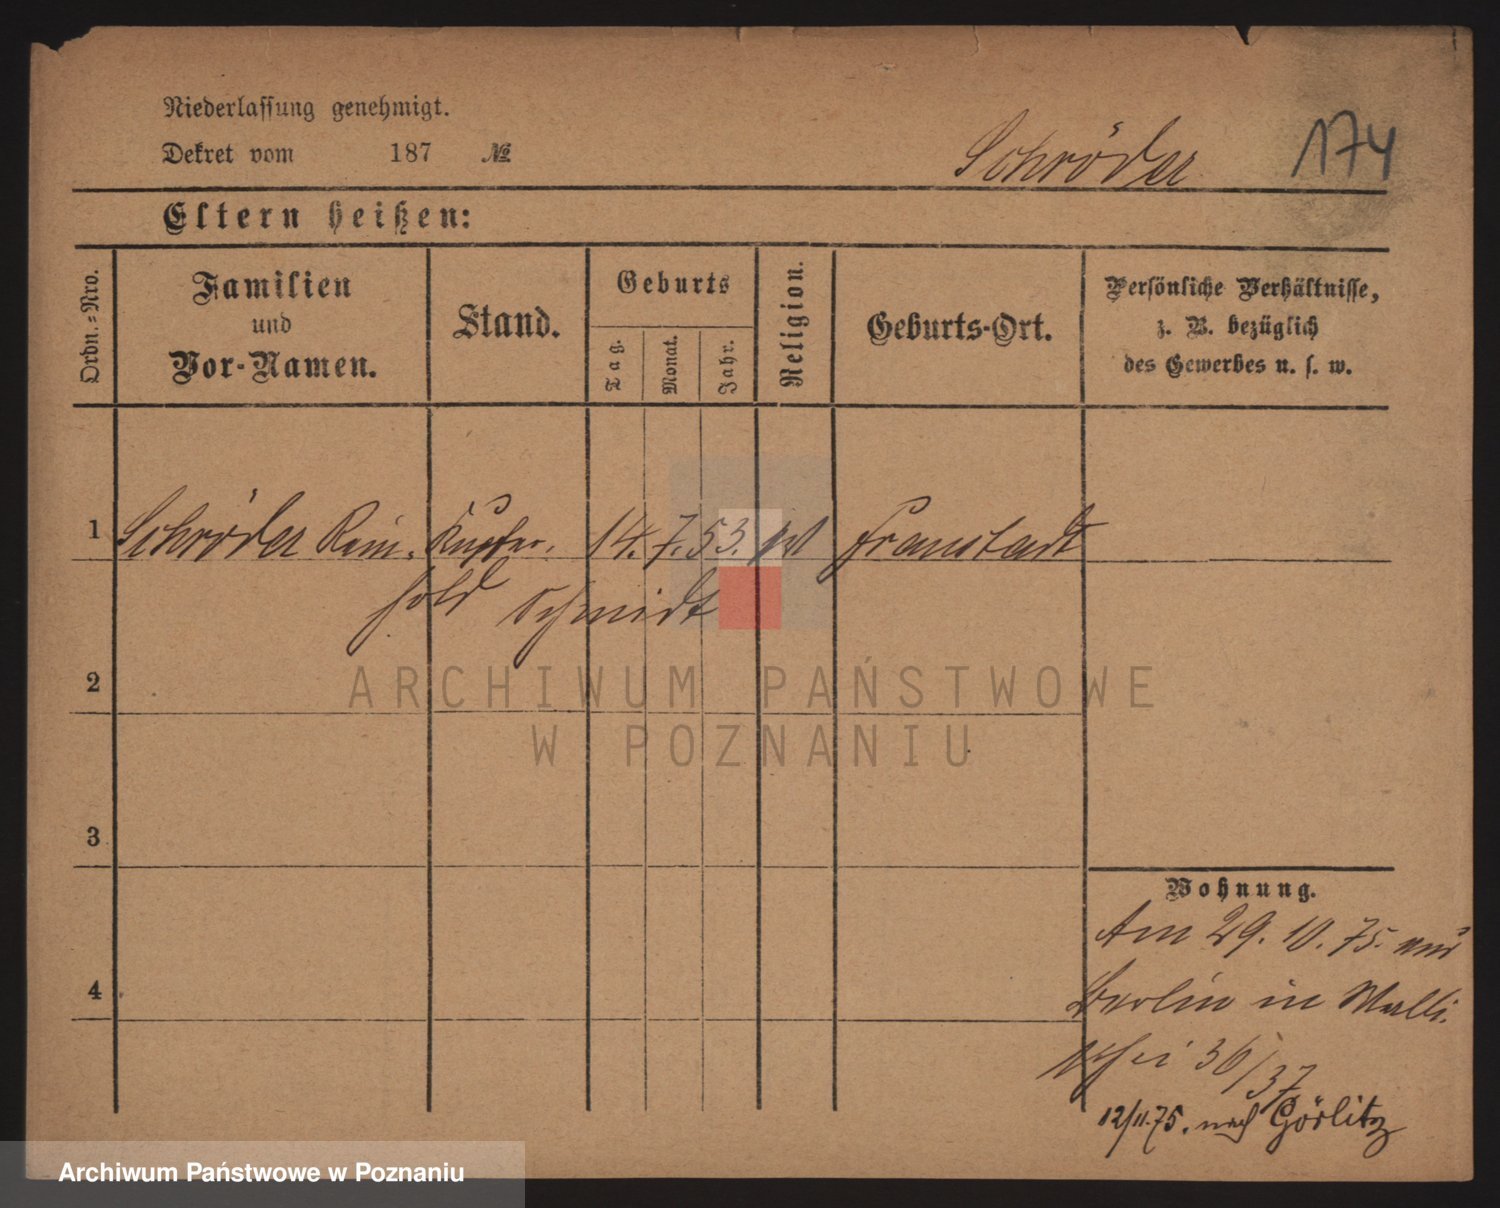 Niederlassung genehmigt.
Dekret vom 187 №
Schröder 174
Eltern heißen:
Ordn.-Nro.
Familien
und
Vor-Namen.
Stand.
Geburts
Tag.
Monat.
Jahr.
Religion.
Geburts-Ort.
Persönliche Verhältnisse,
z. B. bezüglich
des Gewerbes u. s. w.
1 Schröder Rein- Kupfer- 14. 7. 53. Fraustadt
hold Schmidt
2
3
4
Wohnung.
Am 29. 10. 75. aus
Berlin in Walli-
schei 36/37
12/11.75. nach Görlitz
ARCHIWUM PAŃSTWOWE
W POZNANIU
Archiwum Państwowe w Poznaniu